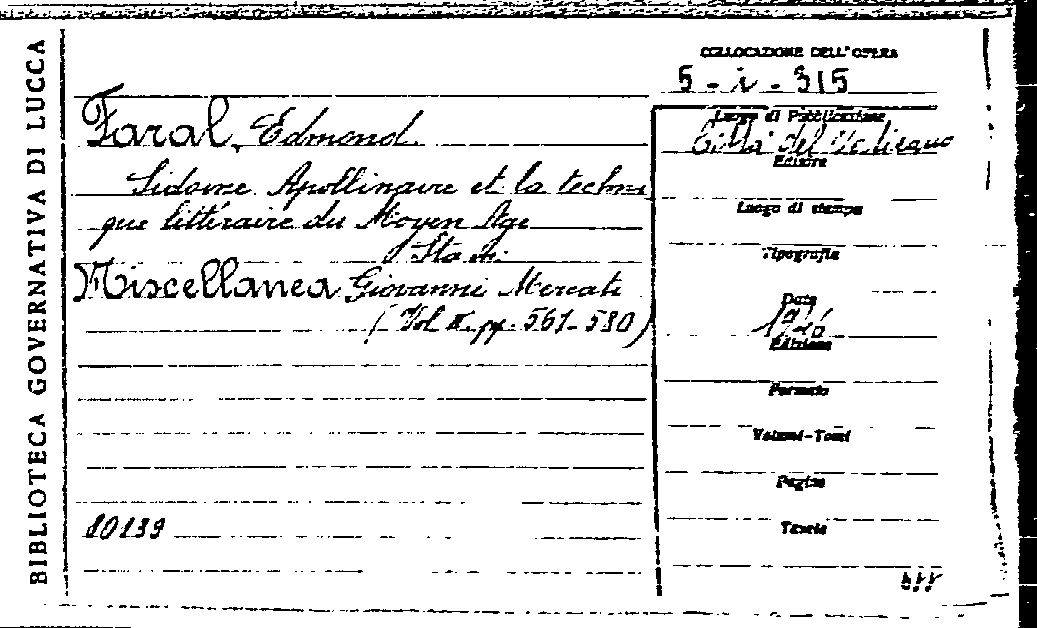 BIBLIOTECA GOVERNATIVA DI LUCCA
COLLOCAZIONE DELL'OPERA
5-i-315
Faral, Edmond.
Sidoine Apollinaire et la techni
que littéraire du Moyen Age
Miscellanea Giovanni Mercati
(Vol II. pp. 561-580)
80139
Luogo di Pubblicazione
Città del Vaticano
Editore
Luogo di stampa
Tipografia
Data
Edizione
Formato
Volumi-Tomi
Pagine
Tavole